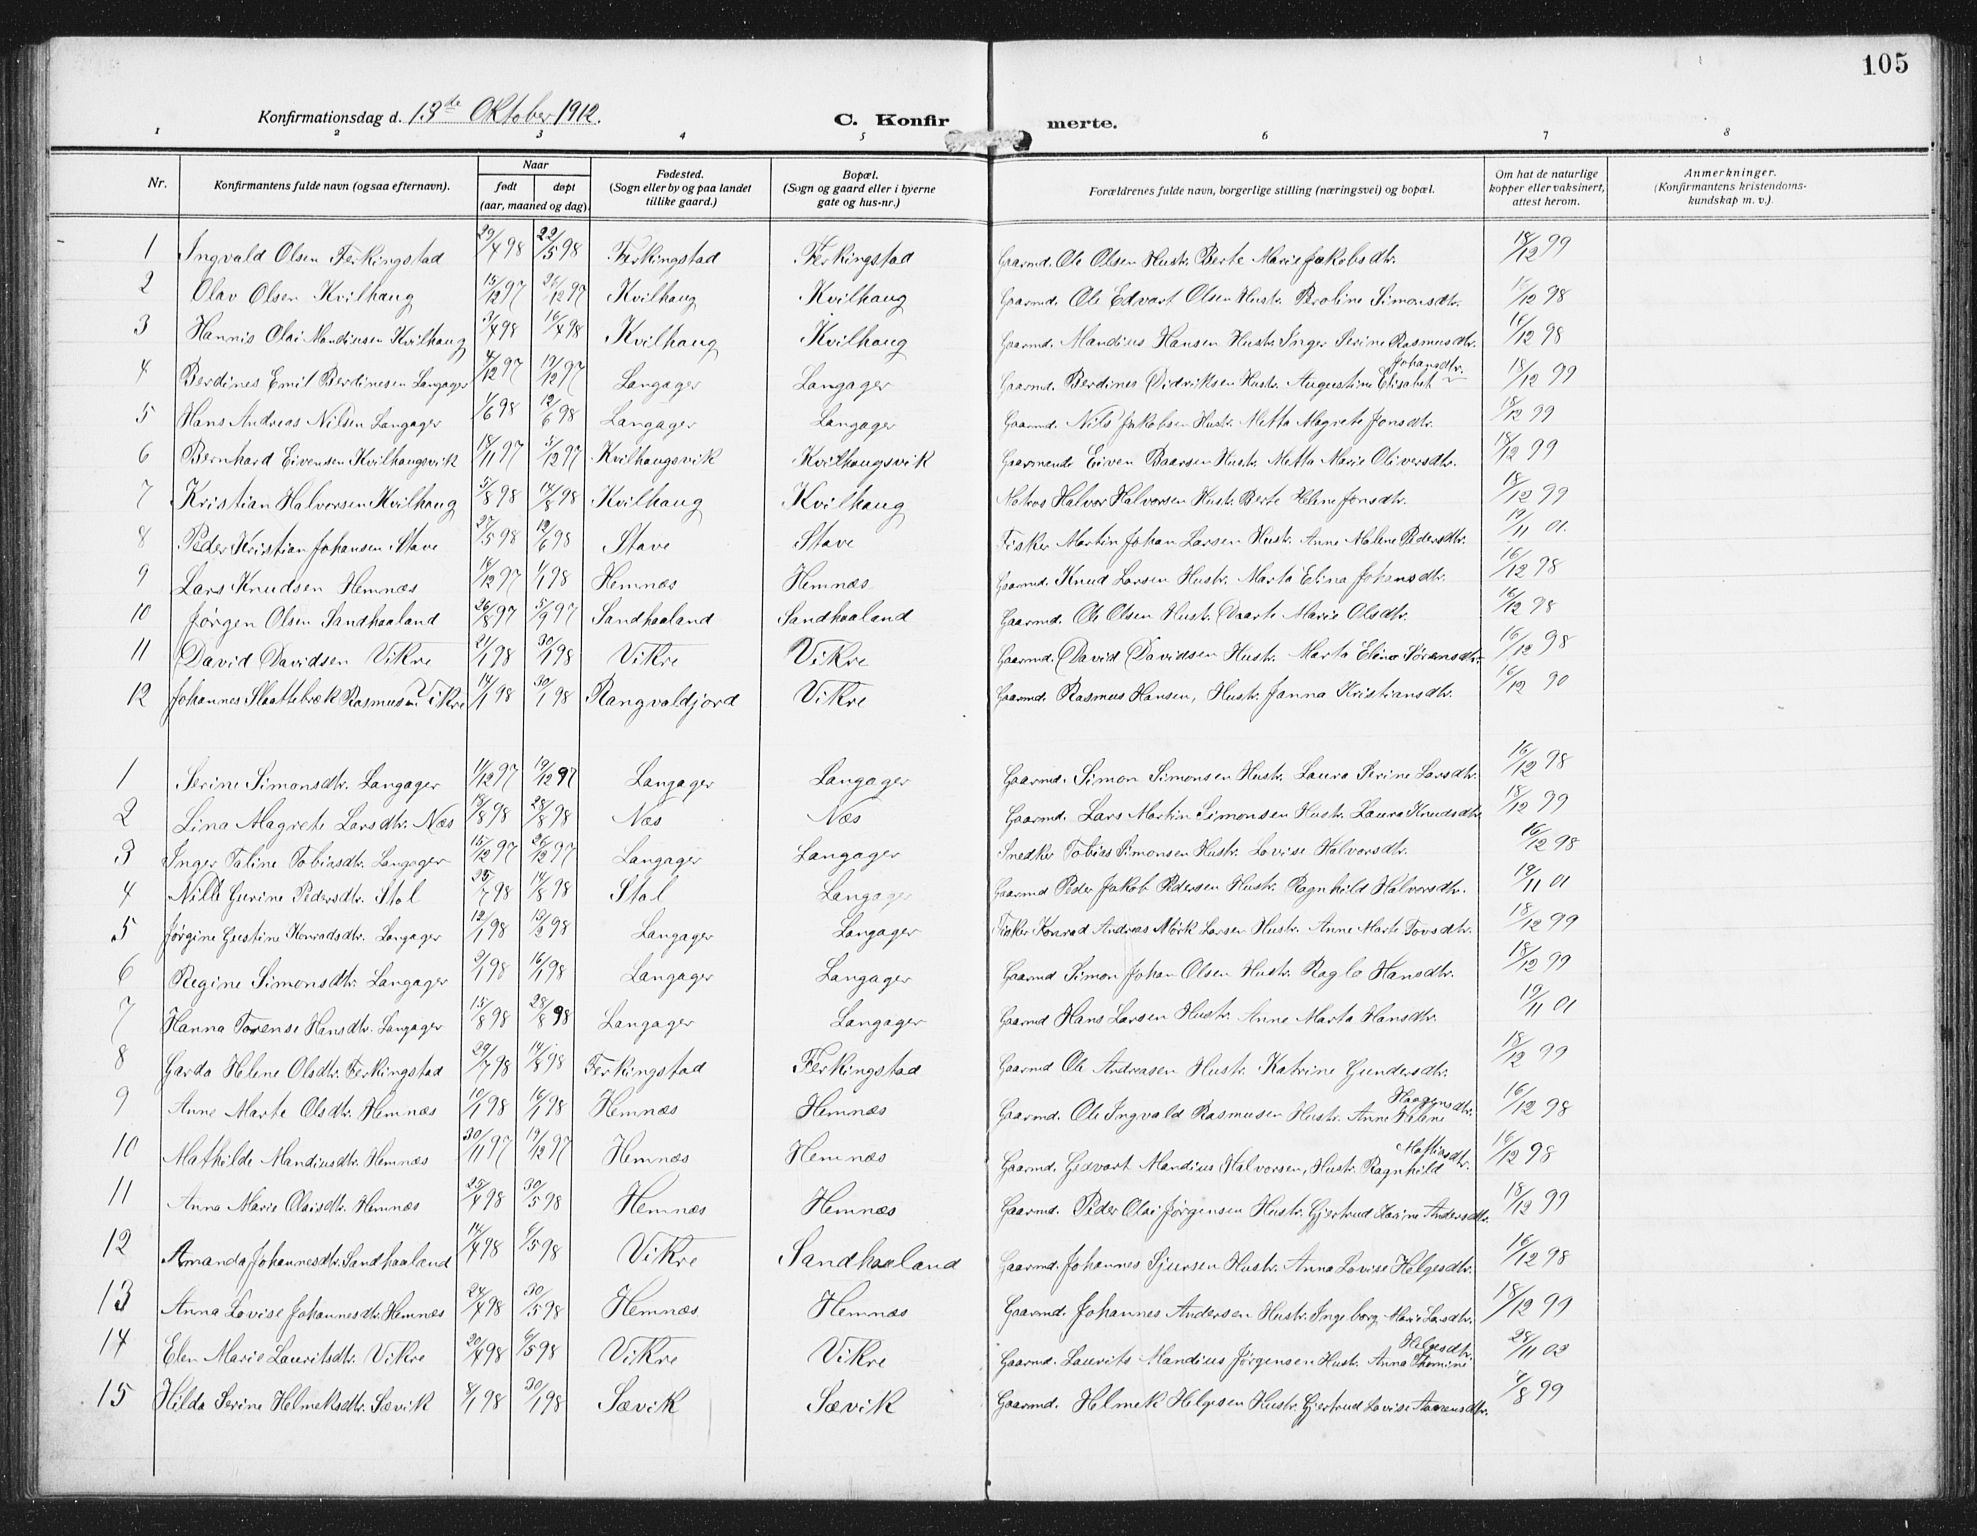 105
Konfirmationsdag d. 13de Oktober 1912.
C. Konfir merte.
1 2 3 4 5 6 7 8
Nr. Konfirmantens fulde navn (ogsaa efternavn). Naar født døpt (aar, maaned og dag). Fødested. (Sogn eller by og paa landet tillike gaard.) Bopæl. (Sogn og gaard eller i byerne gate og hus-nr.) Forældrenes fulde navn, borgerlige stilling (næringsvei) og bopæl. Om hat de naturlige kopper eller vaksinert, attest herom. Anmerkninger. (Konfirmantens kristendoms- kundskap m. v.).
1 Ingvald Olsen Ferkingstad 29/4 98 22/5 98 Ferkingstad Ferkingstad Gaarmd. Ole Olsen Hustr. Berte Marie Jakobsdtr. 18/12 99
2 Olav Olsen Kvilhaug 15/12 97 26/12 97 Kvilhaug Kvilhaug Gaarmd. Ole Edvart Olsen Hustr. Beroline Simonsdtr. 16/12 98
3 Hannis Olai Mandiusen Kvilhaug 3/4 98 16/4 98 Kvilhaug Kvilhaug Gaarmd. Mandius Hansen Hustr. Inger Serine Rasmusdtr. 16/12 98
4 Berdines Emil Berdinesen Langager 4/12 97 19/12 97 Langager Langager Gaarmd. Berdines Didriksen Hustr. Augustine Elisabet Johansdtr. 18/12 99
5 Hans Andreas Nilsen Langager 4/6 98 12/6 98 Langager Langager Gaarmd. Nils Jakobsen Hustr. Metta Magrete Jonsdtr. 18/12 99
6 Bernhard Eivensen Kvilhaugsvik 18/11 97 5/12 97 Kvilhaugsvik Kvilhaugsvik Gaarmand Eiven Baarsen Hustr. Metta Marie Oliversdtr. 18/12 99
7 Kristian Halvorsen Kvilhaug 5/8 98 14/8 98 Kvilhaug Kvilhaug Matros Halvor Halvorsen Hustr. Berte Helene Jonsdtr. 18/12 99
8 Peder Kristian Johansen Stave 27/5 98 12/6 98 Stave Stave Fisker Martin Johan Larsen Hustr. Anne Malene Pedersdtr. 19/11 01.
9 Lars Knudsen Hemnæs 16/12 97 1/1 98 Hemnæs Hemnæs Gaarmd. Knud Larsen Hustr. Marta Elina Johansdtr. 16/12 98
10 Jørgen Olsen Sandhaaland 26/8 97 5/9 97 Sandhaaland Sandhaaland Gaarmd. Ole Olsen Hustr. Daarte Marie Olsdtr. 16/12 98
11 David Davidsen Vikre 21/1 98 30/1 98 Vikre Vikre Gaarmd. David Davidsen Hustr. Marta Elina Sørensdtr. 16/12 98
12 Johannes Slaattebræk Rasmusen Vikre 14/1 98 30/1 98 Rangvaldjord Vikre Gaarmd. Rasmus Hansen, Hustr. Janna Kristiansdtr. 16/12 90
1 Serine Simonsdtr. Langager 11/12 97 19/12 97 Langager Langager Gaarmd. Simon Simonsen Hustr. Laura Serine Larsdtr. 16/12 98
2 Lina Magrete Larsdtr. Næs 18/8 98 28/8 98 Næs Næs Gaarmd. Lars Martin Simonsen Hustr. Laura Knudsdtr. 18/12 99
3 Inger Taline Tobiasdtr. Langager 15/12 97 26/12 97 Langager Langager Snedker Tobias Simonsen Hustr. Lovise Halvorsdtr. 16/12 98
4 Nilli Gurine Pedersdtr. Stol 25/7 98 14/8 98 Stol Langager Gaarmd Peder Jakob Pedersen Hustr. Ragnhild Halvorsdtr. 19/11 01
5 Jørgine Gustine Konradsdtr. Langager 12/1 98 13/2 98 Langager Langager Fisker Konrad Andreas Mørk Larsen Hustr. Anne Marte Tovsdtr. 18/12 99
6 Regine Simonsdtr. Langager 2/1 98 16/1 98 Langager Langager Gaarmd Simon Johan Olsen Hustr. Ragla Hansdtr. 18/12 99
7 Hanna Torense Hansdtr. Langager 15/8 98 28/8 98 Langager Langager Gaarmd Hans Larsen Hustr. Anne Marta Hansdtr. 19/11 01
8 Garda Helene Olsdtr. Ferkingstad 29/7 98 14/8 98 Ferkingstad Ferkingstad Gaarmd Ole Andreasen Hustr. Katrine Gundersdtr. 18/12 99
9 Anne Marte Olsdtr. Hemnæs 10/1 98 16/1 98 Hemnæs Hemnæs Gaarmd. Ole Ingvald Rasmusen Hustr. Anne Helene Haagensdtr. 16/12 98
10 Mathilde Mandiusdtr. Hemnæs 30/11 97 19/12 97 Hemnæs Hemnæs Gaarmd. Gedvart Mandius Halvorsen, Hustr. Ragnhild Mattiasdtr. 16/12 98
11 Anna Marie Olaisdtr. Hemnæs 25/4 98 30/5 98 Hemnæs Hemnæs Gaarmd. Peder Olai Jørgensen Hustr. Gjertrud Karine Andersdtr. 18/12 99
12 Amanda Johannesdtr. Sandhaaland 14/4 98 6/5 98 Vikre Sandhaaland Gaarmd. Johannes Sjursen Hustr. Anna Lovise Helgesdtr. 16/12 98
13 Anna Lovise Johannesdtr. Hemnæs 24/4 98 30/5 98 Hemnæs Hemnæs Gaarmd. Johannes Andersen Hustr. Ingeborg Marie Larsdtr. 18/12 99
14 Elen Marie Lauritsdtr. Vikre 20/4 98 6/5 98 Vikre Vikre Gaarmd. Laurits Mandius Jørgensen Hustr. Anna Thomine Helgesdtr. 28/11 03
15 Hilda Serine Helmeksdtr. Sævik 8/1 98 30/1 98 Sævik Sævik Gaarmd. Helmek Helgesen Hustr. Gjertrud Lovise Aanensdtr. 4/8 99